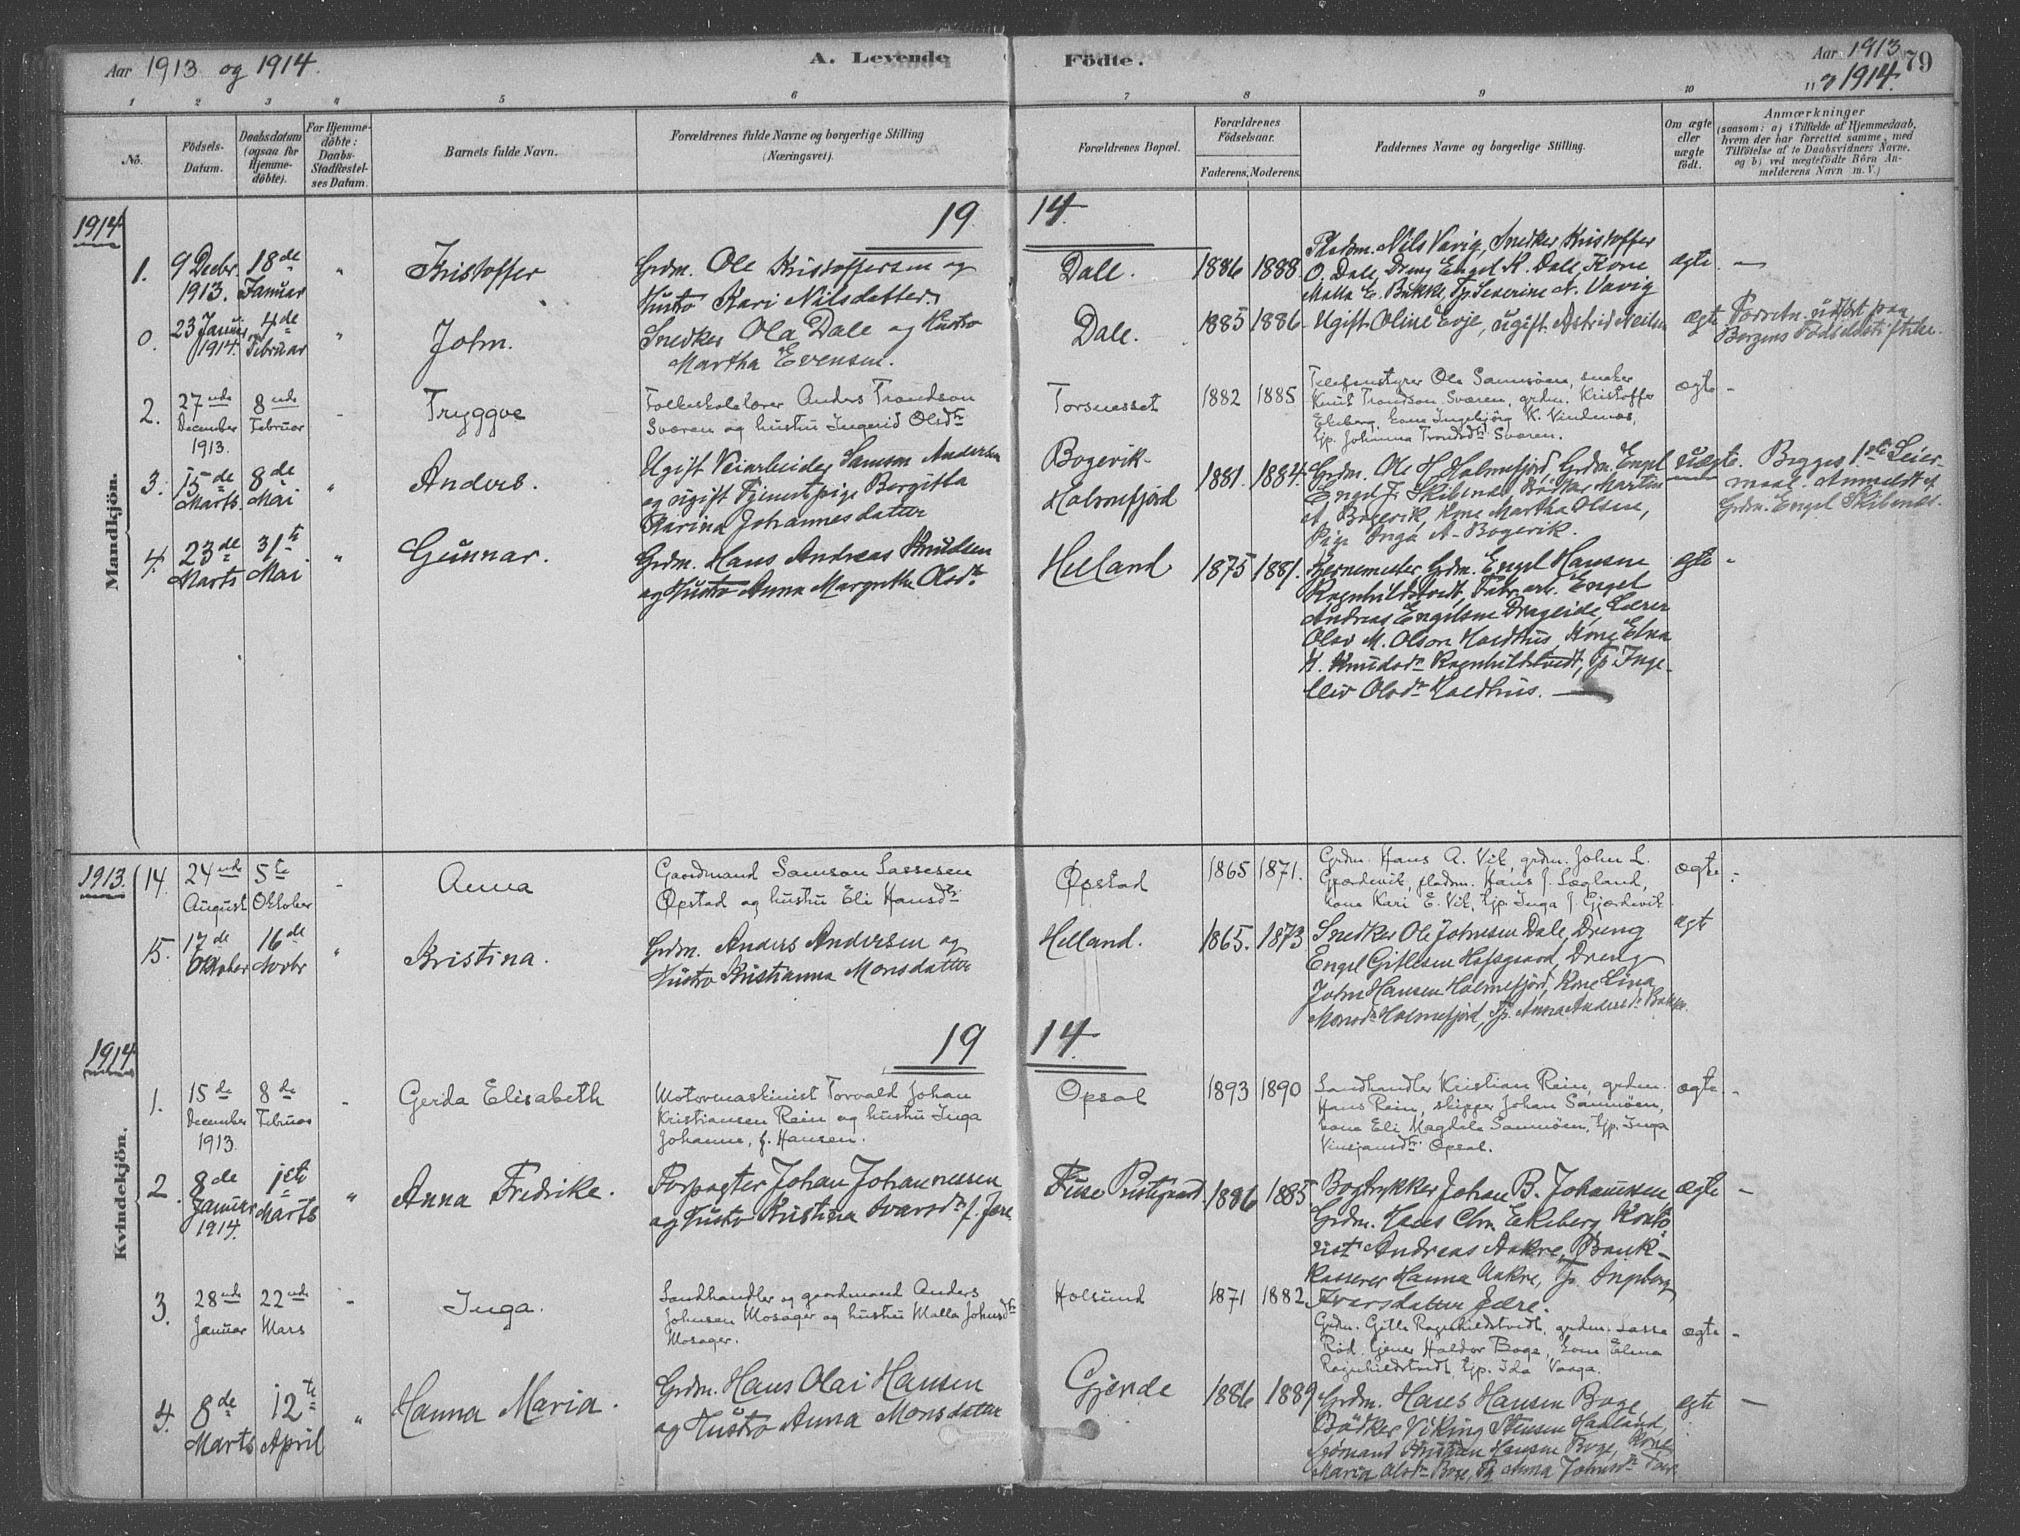 Aar 1913 og 1914.
A. Levende
Födte.
Aar 1913
og 1914.
79
1 2 3 4 5 6 7 8 9 10 11
No.
Födsels-Datum.
Daabsdatum (ogsaa for Hjemme-döbte).
For Hjemme-döbte: Daabs-Stadfæstel-ses Datum.
Barnets fulde Navn.
Forældrenes fulde Navne og borgerlige Stilling (Næringsvei).
Forældrenes Bopæl.
Forældrenes Födselsaar.
Faderens. Moderens.
Faddernes Navne og borgerlige Stilling.
Om ægte eller uægte födt.
Anmærkninger
(saasom: a) i Tilfælde af Hjemmedaab,
hvem der har forrettet samme, med
Tilföielse af to Daabsvidners Navne,
og b) ved uægtefödte Börn An-
melderens Navn m. V.)
Mandkjön.
1914
19 14.
1. 9 Decbr. 1913. 18de Januar " Kristoffer
Grdm. Ole Kristoffersen og
Hustro Kari Nilsdatter.
Dale. 1886 1888
Pladsm. Nils Vavig, Snedker Kristoffer
O. Dale, Dreng Engel K. Dale, Kone
Malla E. Bukke, Tp. Severine N. Vavig
ægte —
0. 23 Januar 1914. 4de Februar " John.
Snedker Ola Dale og Hustro
Martha Evensen.
Dale. 1885 1886
Ugift Oline Evje, ugift Astrid Neilsen
ægte Forretn. udført paa
Bergens Fødselsstiftelse.
2. 27nde December 1913. 8nde Februar - Tryggve
Folkeskolelærer Anders Trondson
Sværen og hustru Ingerid Olsdtr.
Torsnesset 1882 1885
Telefonstyrer Ole Samnøen, snekr
Knut Trondson Sværen, grdm. Kristoffer
Ekeberg, kone Ingebjörg K. Vindenæs,
tjp. Johanna Trondsdtr Sværen.
ægte -
3. 15de Marts 8de Mai " Anders.
Ugift Veiarbeider Samson Andersen
og ugift Tjenestepige Bergitta
Karina Johannesdatter
Bogevik-
Holmefjord 1881. 1884.
Grdm. Ole H. Holmefjord, Grdm. Engel
Engel J. Skibenes, Bødker Martin
A. Bogevik, Kone Martha Olsen,
Pige Inga A. Bogevik.
uægte. Begges 1ste Leier-
maal. Anmeldt af
Grdm. Engel Skibenes.
4. 23de Marts 31te Mai " Gunnar.
Grdm. Hans Andreas Knudsen
og Hustro Anna Margrethe Olsdtr
Helland 1875 1881.
Grdm. Engel Hansen
Ragnhildstvedt, Fabr.arb. Engel
Andreas Engelsen Drageide, Lærer
Olav M. Olson Holdhus, Kone Elna
K. Knudsdr Ragnhildstvedt, Tp. Inge-
bliv Olsdr Holdhus. —
ægte -
Kvindekjön.
1913. 14. 24nde August 5te Oktober - Anna
Gaardmand Samson Lassesen
Øpstad og hustru Eli Hansdtr
Øpstad 1865 1871.
Grdm. Hans A. Vik, grdm. John L.
Gjærdevik, pladsm. Hans J. Lægland,
kone Kari E. Vik, tjp. Inga J Gjærdevik
ægte -
15. 17de Oktober 16de Novbr " Kristina.
Grdm. Anders Andersen og
Hustro Kristianna Monsdatter
Helland. 1865. 1873
Snedker Ole Johnsen Dale, Dreng
Engel Gitlesen Hafsgaard, Dreng
John Hansen Holmefjord, Kone Lina
Monsdr Holmefjord, Tp. Anna Andersdr
ægte
1914
19 14.
1. 15de December 1913. 8de Februar - Gerda Elisabeth
Motormaskinist Torvald Johan
Kristiansen Rein og hustru Inga
Johanne, f. Hansen.
Opsal 1893 1890
Landhandler Kristian Rein, grdm.
Hans Rein, skipper Johan Samnøen,
kone Eli Magdele Samnøen, tjp. Inga
Vinsjansdtr Opsal.
ægte -
2. 8de Januar 1914. 1ste Marts " Anna Fredrike.
Forpagter Johan Johannessen
og Hustro Kristina Ivarsdr f. Jære
Fuse Prestegaard 1886 1885
Bogtrykker Johan B. Johannesen
Grdm. Hans Chr. Ekeberg, Konto-
rist Andreas Aakre, Bank-
kasserer Hanna Aakre, Tp. Ingeborg
Ivarsdatter Jære.
ægte -
3. 28nde Januar 22nde Mars - Inga.
Landhandler og gaardmand Anders
Johnsen Mosager og hustru Malla Johnsdtr
Mosager.
Holsund 1871 1882
Grdm. Gitle Ragnhildstvedt, grdm. Lasse
Rød, tjener Haldor Boge, kone Elma
Ragnhildstvedt, tjp. Ida Vaaga.
ægte -
4. 8de Marts 12te April " Hanna Maria.
Grdm. Hans Olai Hansen
og Hustro Anna Monsdatter
Gjende 1886 1889
Grdm. Hans Hansen Boge,
Bødker Viking Steinsen Havland,
Sømand Kristian Hansen Boge, Kone
Maria Olsdr Boge, Tp. Anna Johnsdr
ægte —